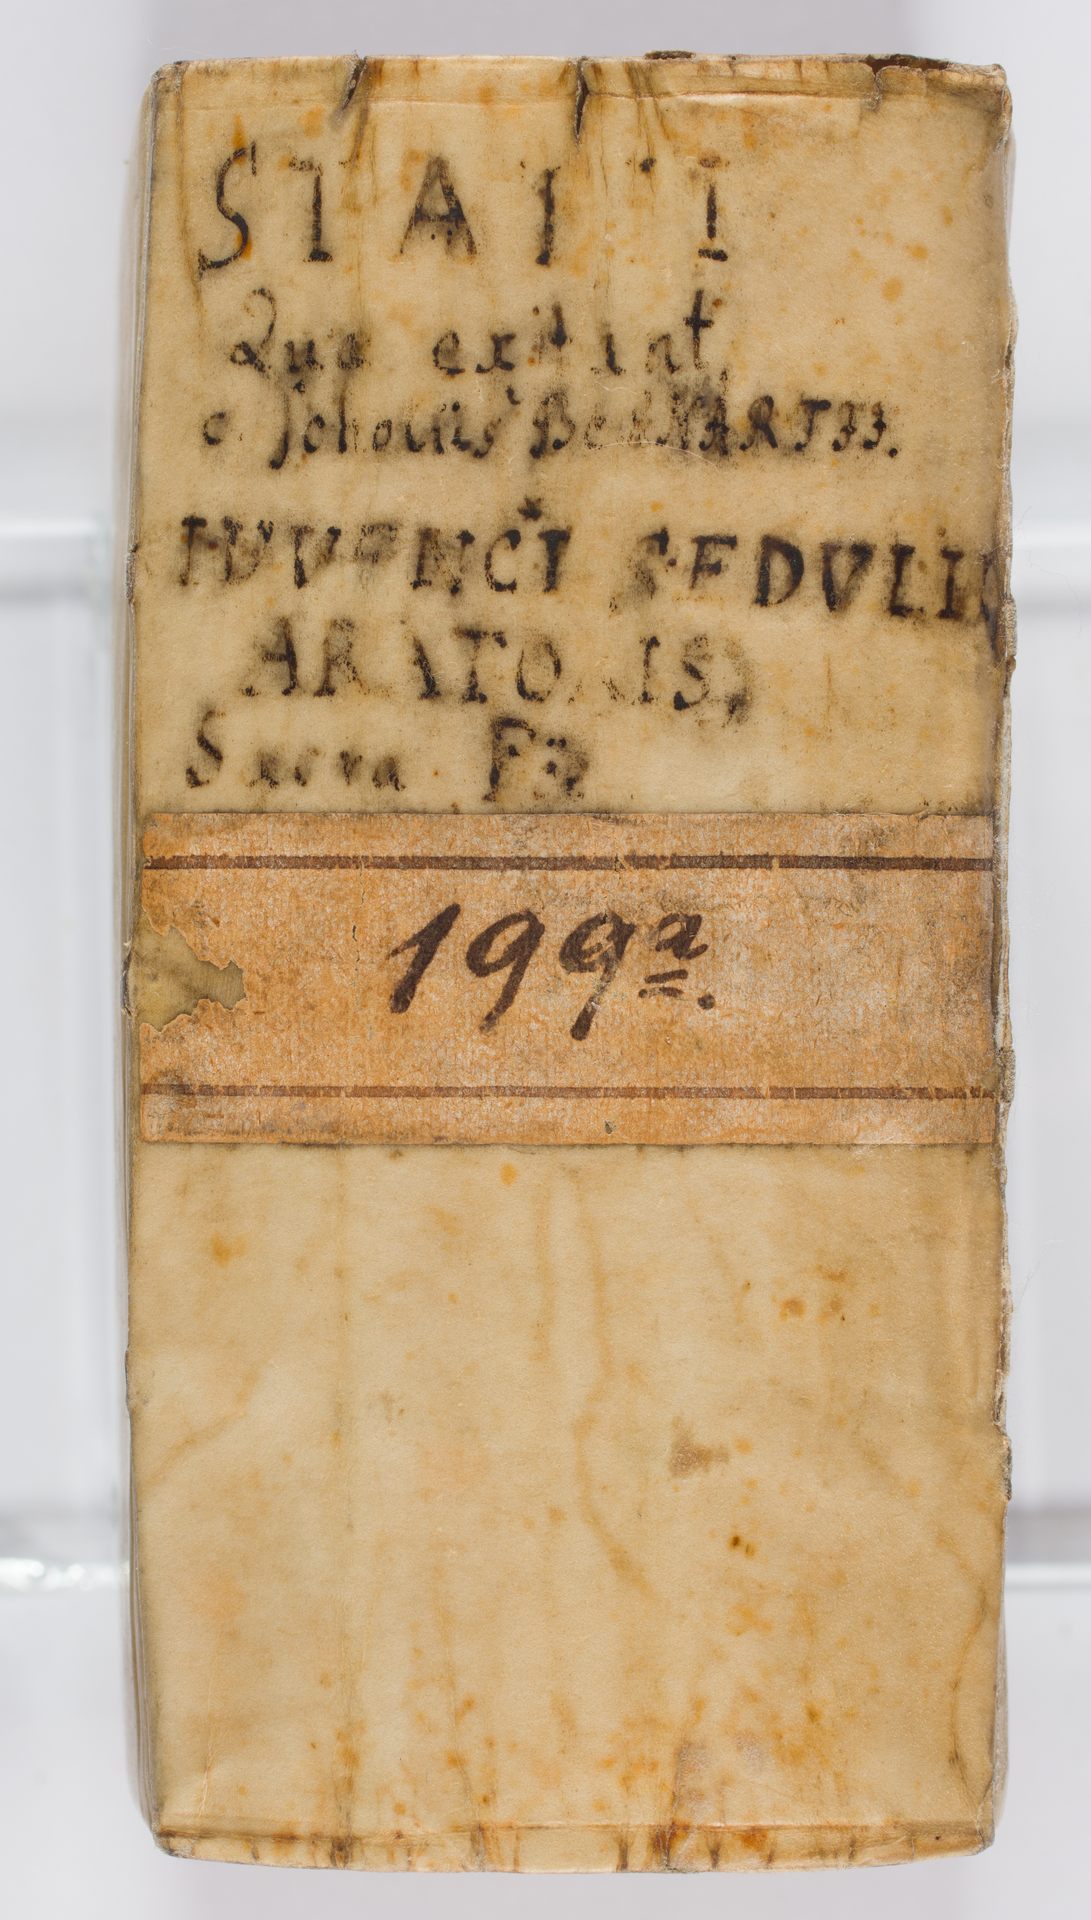 STATII
Quæ extant
c. Scholiis BernARTII.
IUVENCI SEDULII
ARATORIS,
Sacra
199a.